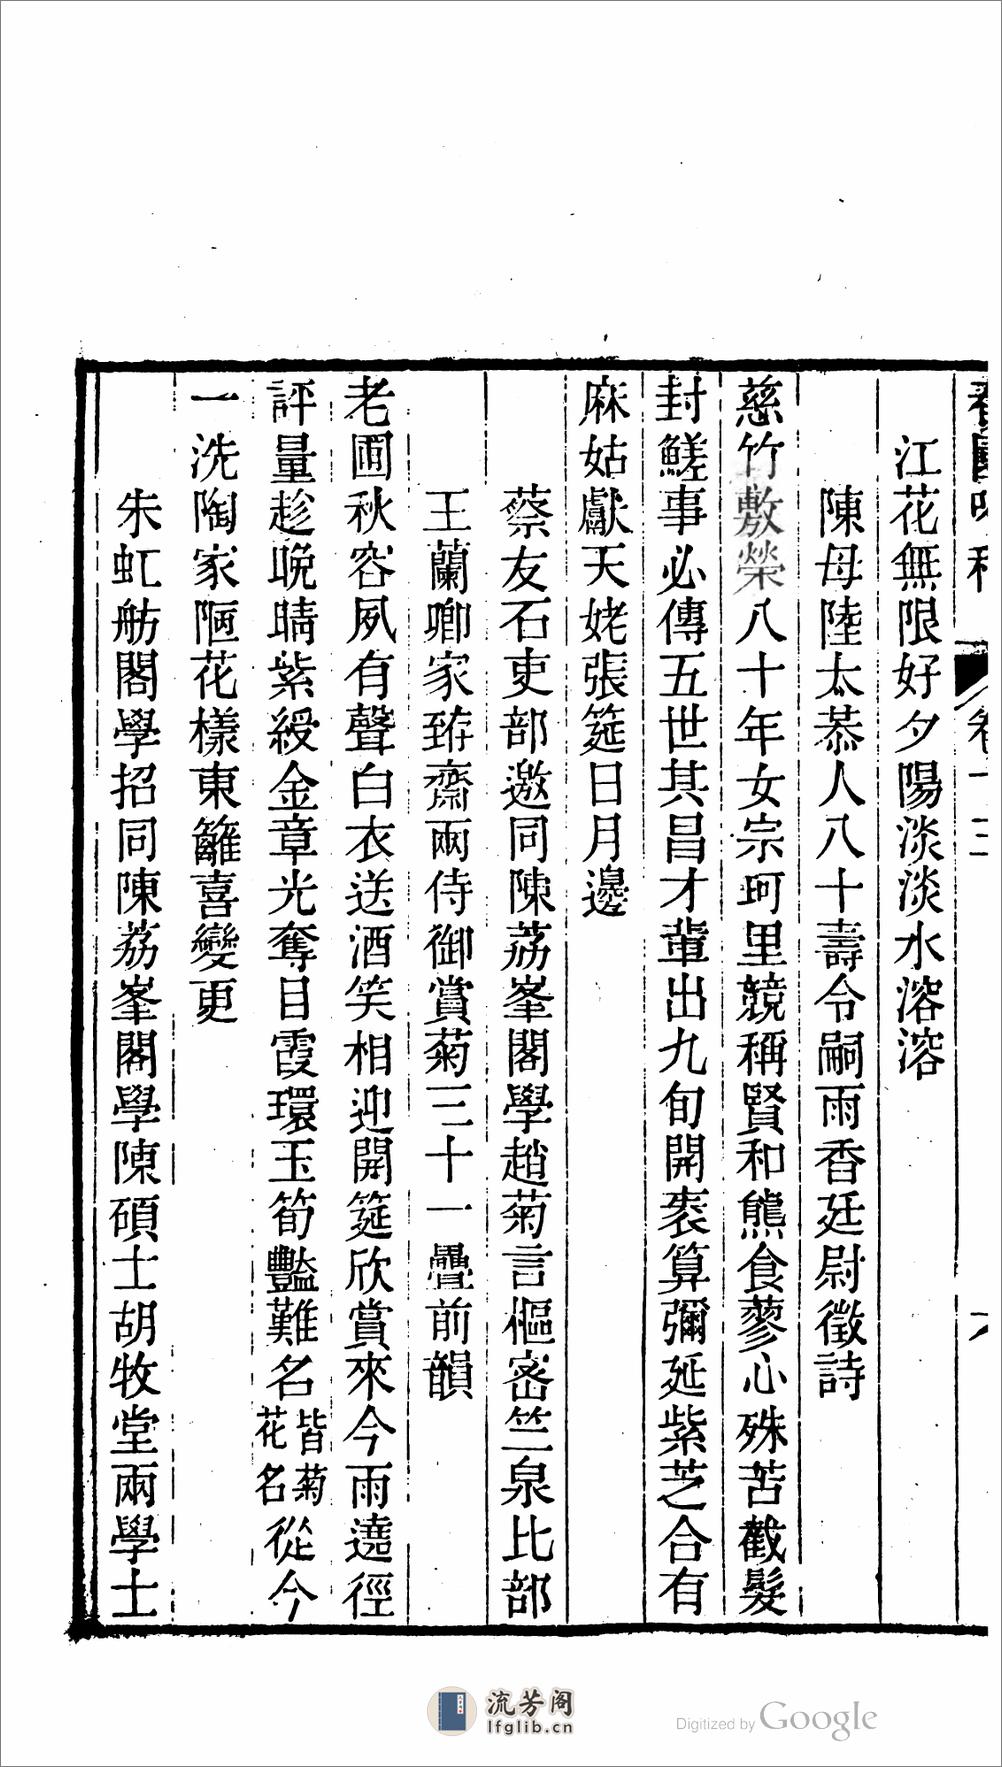 卷十三
江花無限好夕陽淡淡水溶溶
陳母陸太恭人八十壽令嗣雨香廷尉徵詩
慈竹敷榮八十年女宗珂里競稱賢和熊食蓼心殊苦截髮
封鮓事必傳五世其昌才輩出九旬開袠算彌延紫芝合有
麻姑獻天姥張筵日月邊
蔡友石吏部邀同陳荔峯閣學趙菊言樞密竺泉比部
王蘭卿家㺹齋兩侍御賞菊三十一疊前韻
老圃秋容夙有聲白衣送酒笑相迎開筵欣賞來今雨遶徑
評量趁晚晴紫綬金章光奪目霞環玉筍豔難名皆菊花名從今
一洗陶家陋花樣東籬喜變更
朱虹舫閣學招同陳荔峯閣學陳碩士胡牧堂兩學士
流芳阁
lfglib.cn
Digitized by Google